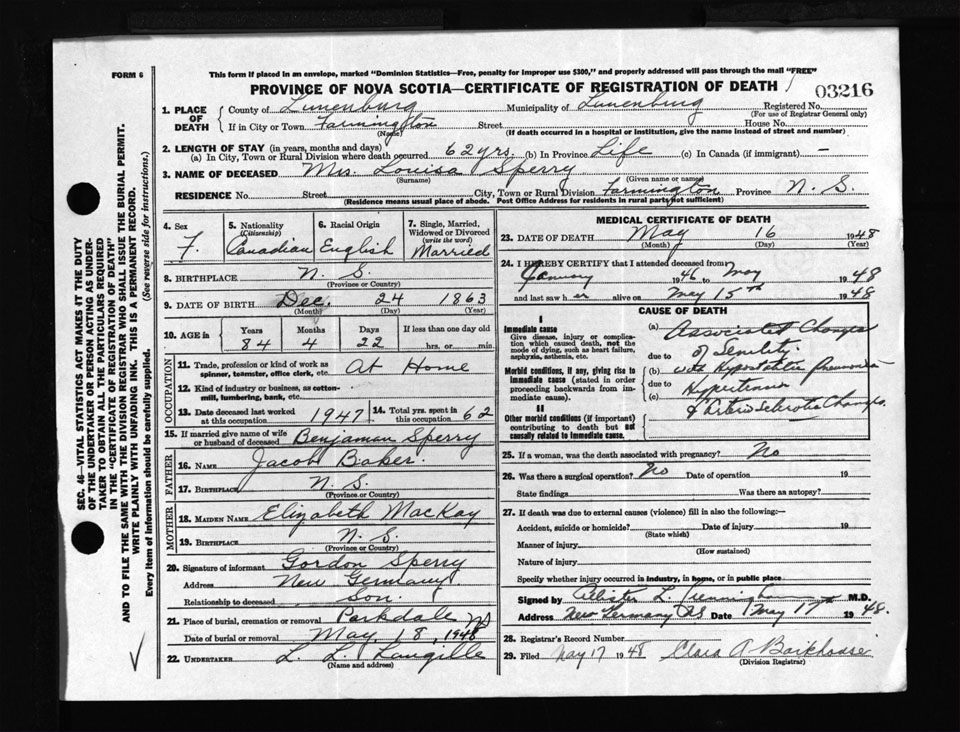 FORM 6
This form if placed in an envelope, marked "Dominion Statistics—Free, penalty for improper use $300," and properly addressed will pass through the mail "FREE"
PROVINCE OF NOVA SCOTIA—CERTIFICATE OF REGISTRATION OF DEATH
03216
1. PLACE OF DEATH
County of Lunenburg Municipality of Lunenburg Registered No.
(For use of Registrar General only)
If in City or Town Farmington Street House No.
(Name) (If death occurred in a hospital or institution, give the name instead of street and number)
2. LENGTH OF STAY (in years, months and days)
(a) In City, Town or Rural Division where death occurred 62 yrs. (b) In Province Life (c) In Canada (if immigrant) —
3. NAME OF DECEASED Mrs. Louisa Sperry
(Surname) (Given name or names)
RESIDENCE No. Street City, Town or Rural Division Farmington Province N. S.
(Residence means usual place of abode. Post Office Address for residents in rural parts not sufficient)
4. Sex F.
5. Nationality (Citizenship) Canadian
6. Racial Origin English
7. Single, Married, Widowed or Divorced (write the word) Married
8. BIRTHPLACE N. S.
(Province or Country)
9. DATE OF BIRTH Dec. 24 1863
(Month) (Day) (Year)
10. AGE in Years Months Days If less than one day old
84 4 22 hrs. or min.
OCCUPATION
11. Trade, profession or kind of work as spinner, teamster, office clerk, etc. At Home
12. Kind of industry or business, as cotton-mill, lumbering, bank, etc.
13. Date deceased last worked at this occupation 1947 14. Total yrs. spent in this occupation 62
15. If married give name of wife or husband of deceased Benjaman Sperry
FATHER
16. NAME Jacob Baker.
17. BIRTHPLACE N. S.
(Province or Country)
MOTHER
18. MAIDEN NAME Elizabeth MacKay
19. BIRTHPLACE N. S.
(Province or Country)
20. Signature of informant Gordon Sperry
Address New Germany
Relationship to deceased Son.
21. Place of burial, cremation or removal Parkdale NS
Date of burial or removal May. 18, 1948
22. UNDERTAKER L. L. Langille
(Name and address)
MEDICAL CERTIFICATE OF DEATH
23. DATE OF DEATH May 16 1948
(Month) (Day) (Year)
24. I HEREBY CERTIFY that I attended deceased from
January 1946 to May 1948
and last saw her alive on May 15th 1948
CAUSE OF DEATH
I
Immediate cause
Give disease, injury or complication which caused death, not the mode of dying, such as heart failure, asphyxia, asthenia, etc.
Morbid conditions, if any, giving rise to immediate cause (stated in order proceeding backwards from immediate cause).
II
Other morbid conditions (if important) contributing to death but not causally related to immediate cause.
(a) Associated Changes
due to of Senility
(b) with Hypostatic Pneumonia
due to Hypertension
(c) & Arterio Sclerotic Changes.
25. If a woman, was the death associated with pregnancy? No
26. Was there a surgical operation? No Date of operation 19
State findings Was there an autopsy?
27. If death was due to external causes (violence) fill in also the following:—
Accident, suicide or homicide? Date of injury 19
(State which)
Manner of injury
(How sustained)
Nature of injury
Specify whether injury occurred in industry, in home, or in public place
Signed by L. M.D.
Address New Germany NS Date May 17th 1948.
28. Registrar's Record Number
29. Filed May 17 1948 Clara A Barkhouse
(Division Registrar)
SEC. 46—VITAL STATISTICS ACT MAKES IT THE DUTY
OF THE UNDERTAKER OR PERSON ACTING AS UNDER-
TAKER TO OBTAIN ALL THE PARTICULARS REQUIRED
IN THE "CERTIFICATE OF REGISTRATION OF DEATH"
AND TO FILE THE SAME WITH THE DIVISION REGISTRAR WHO SHALL ISSUE THE BURIAL PERMIT.
WRITE PLAINLY WITH UNFADING INK. THIS IS A PERMANENT RECORD.
Every item of information should be carefully supplied. (See reverse side for instructions.)